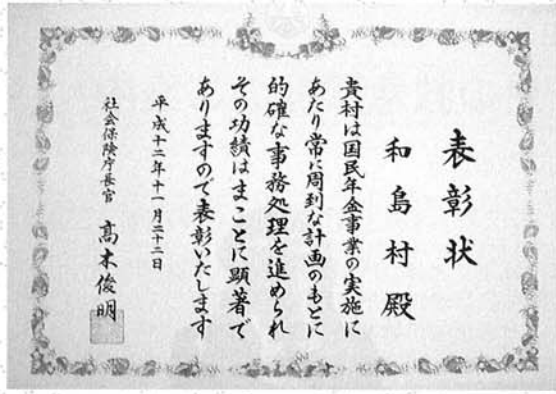 表彰状
和島村殿
貴村は国民年金事業の実施に
あたり常に周到な計画のもとに
的確な事務処理を進められ
その功績はまことに顕著で
ありますので表彰いたします
平成十二年十一月二十二日
社会保険庁長官 高木俊明